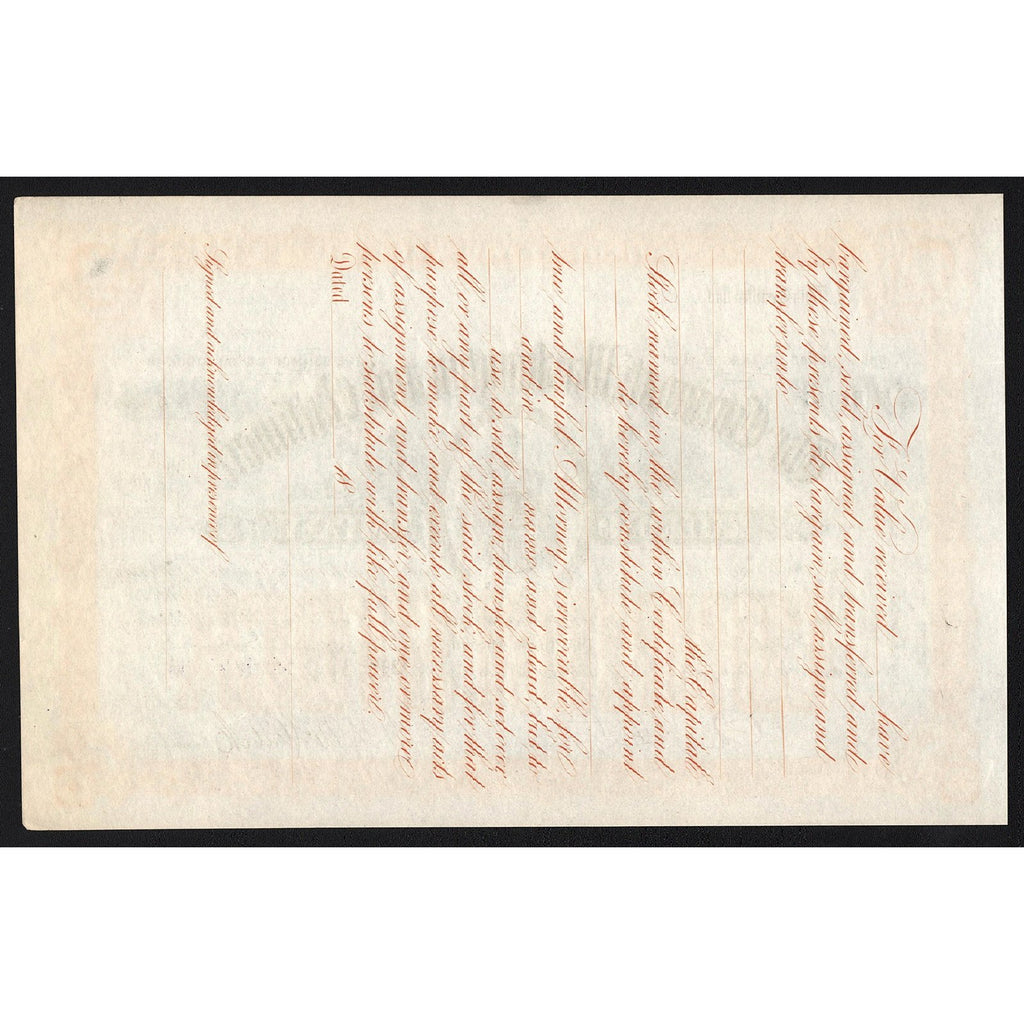 For Value received have
bargained, sold, assigned and transferred and
by these presents do bargain, sell, assign and
transfer unto
the Capital
Stock named in the within Certificate and
do hereby constitute and appoint
true and lawful Attorney, irrevocable for
name and stead but to
use to sell, assign, transfer and set over
all or any part of the said stock and for that
purpose to make and execute all necessary acts
of assignment and transfer and one or more
persons to substitute with like full power.
Dated 18
Signed and acknowledged in presence of